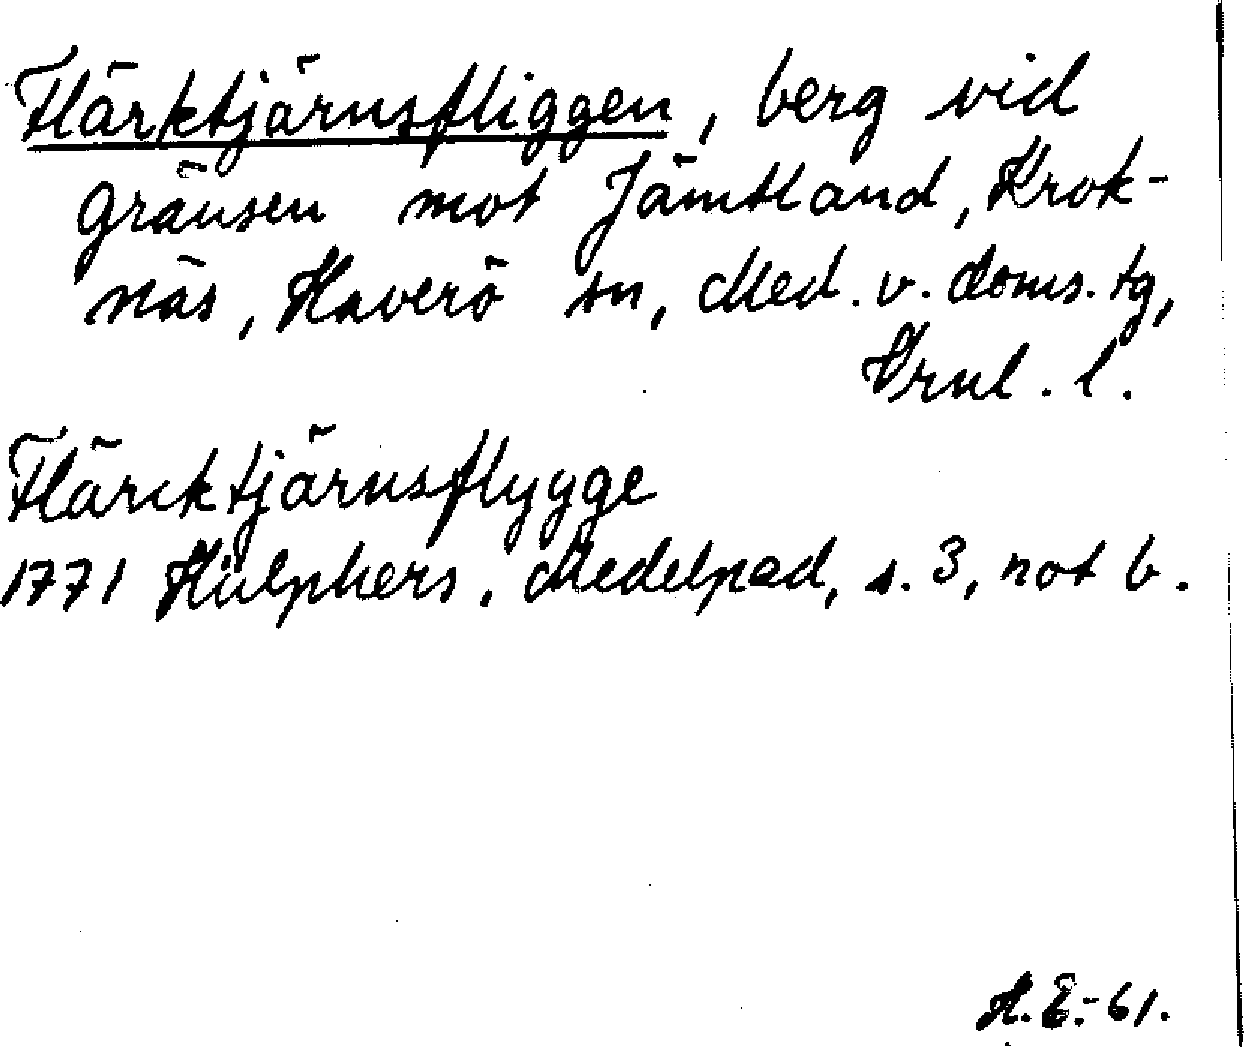 Flärktjärnsfliggen, berg vid
gränsen mot Jämtland, Krok-
näs, Haverö sn, Med. v. doms. tg,
Vrnl. l.
Flärcktjärnsflygge
1771 Hülphers. Medelpad, s. 3, not b.
A. Ö. -61.